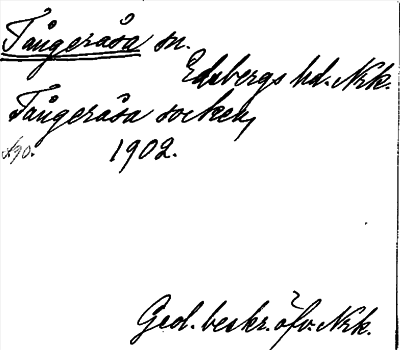 Tångeråsa sn.
Edsbergs hd. Nrk.
Tångeråsa socken,
1902.
Geol. beskr. öfv. Nrk.